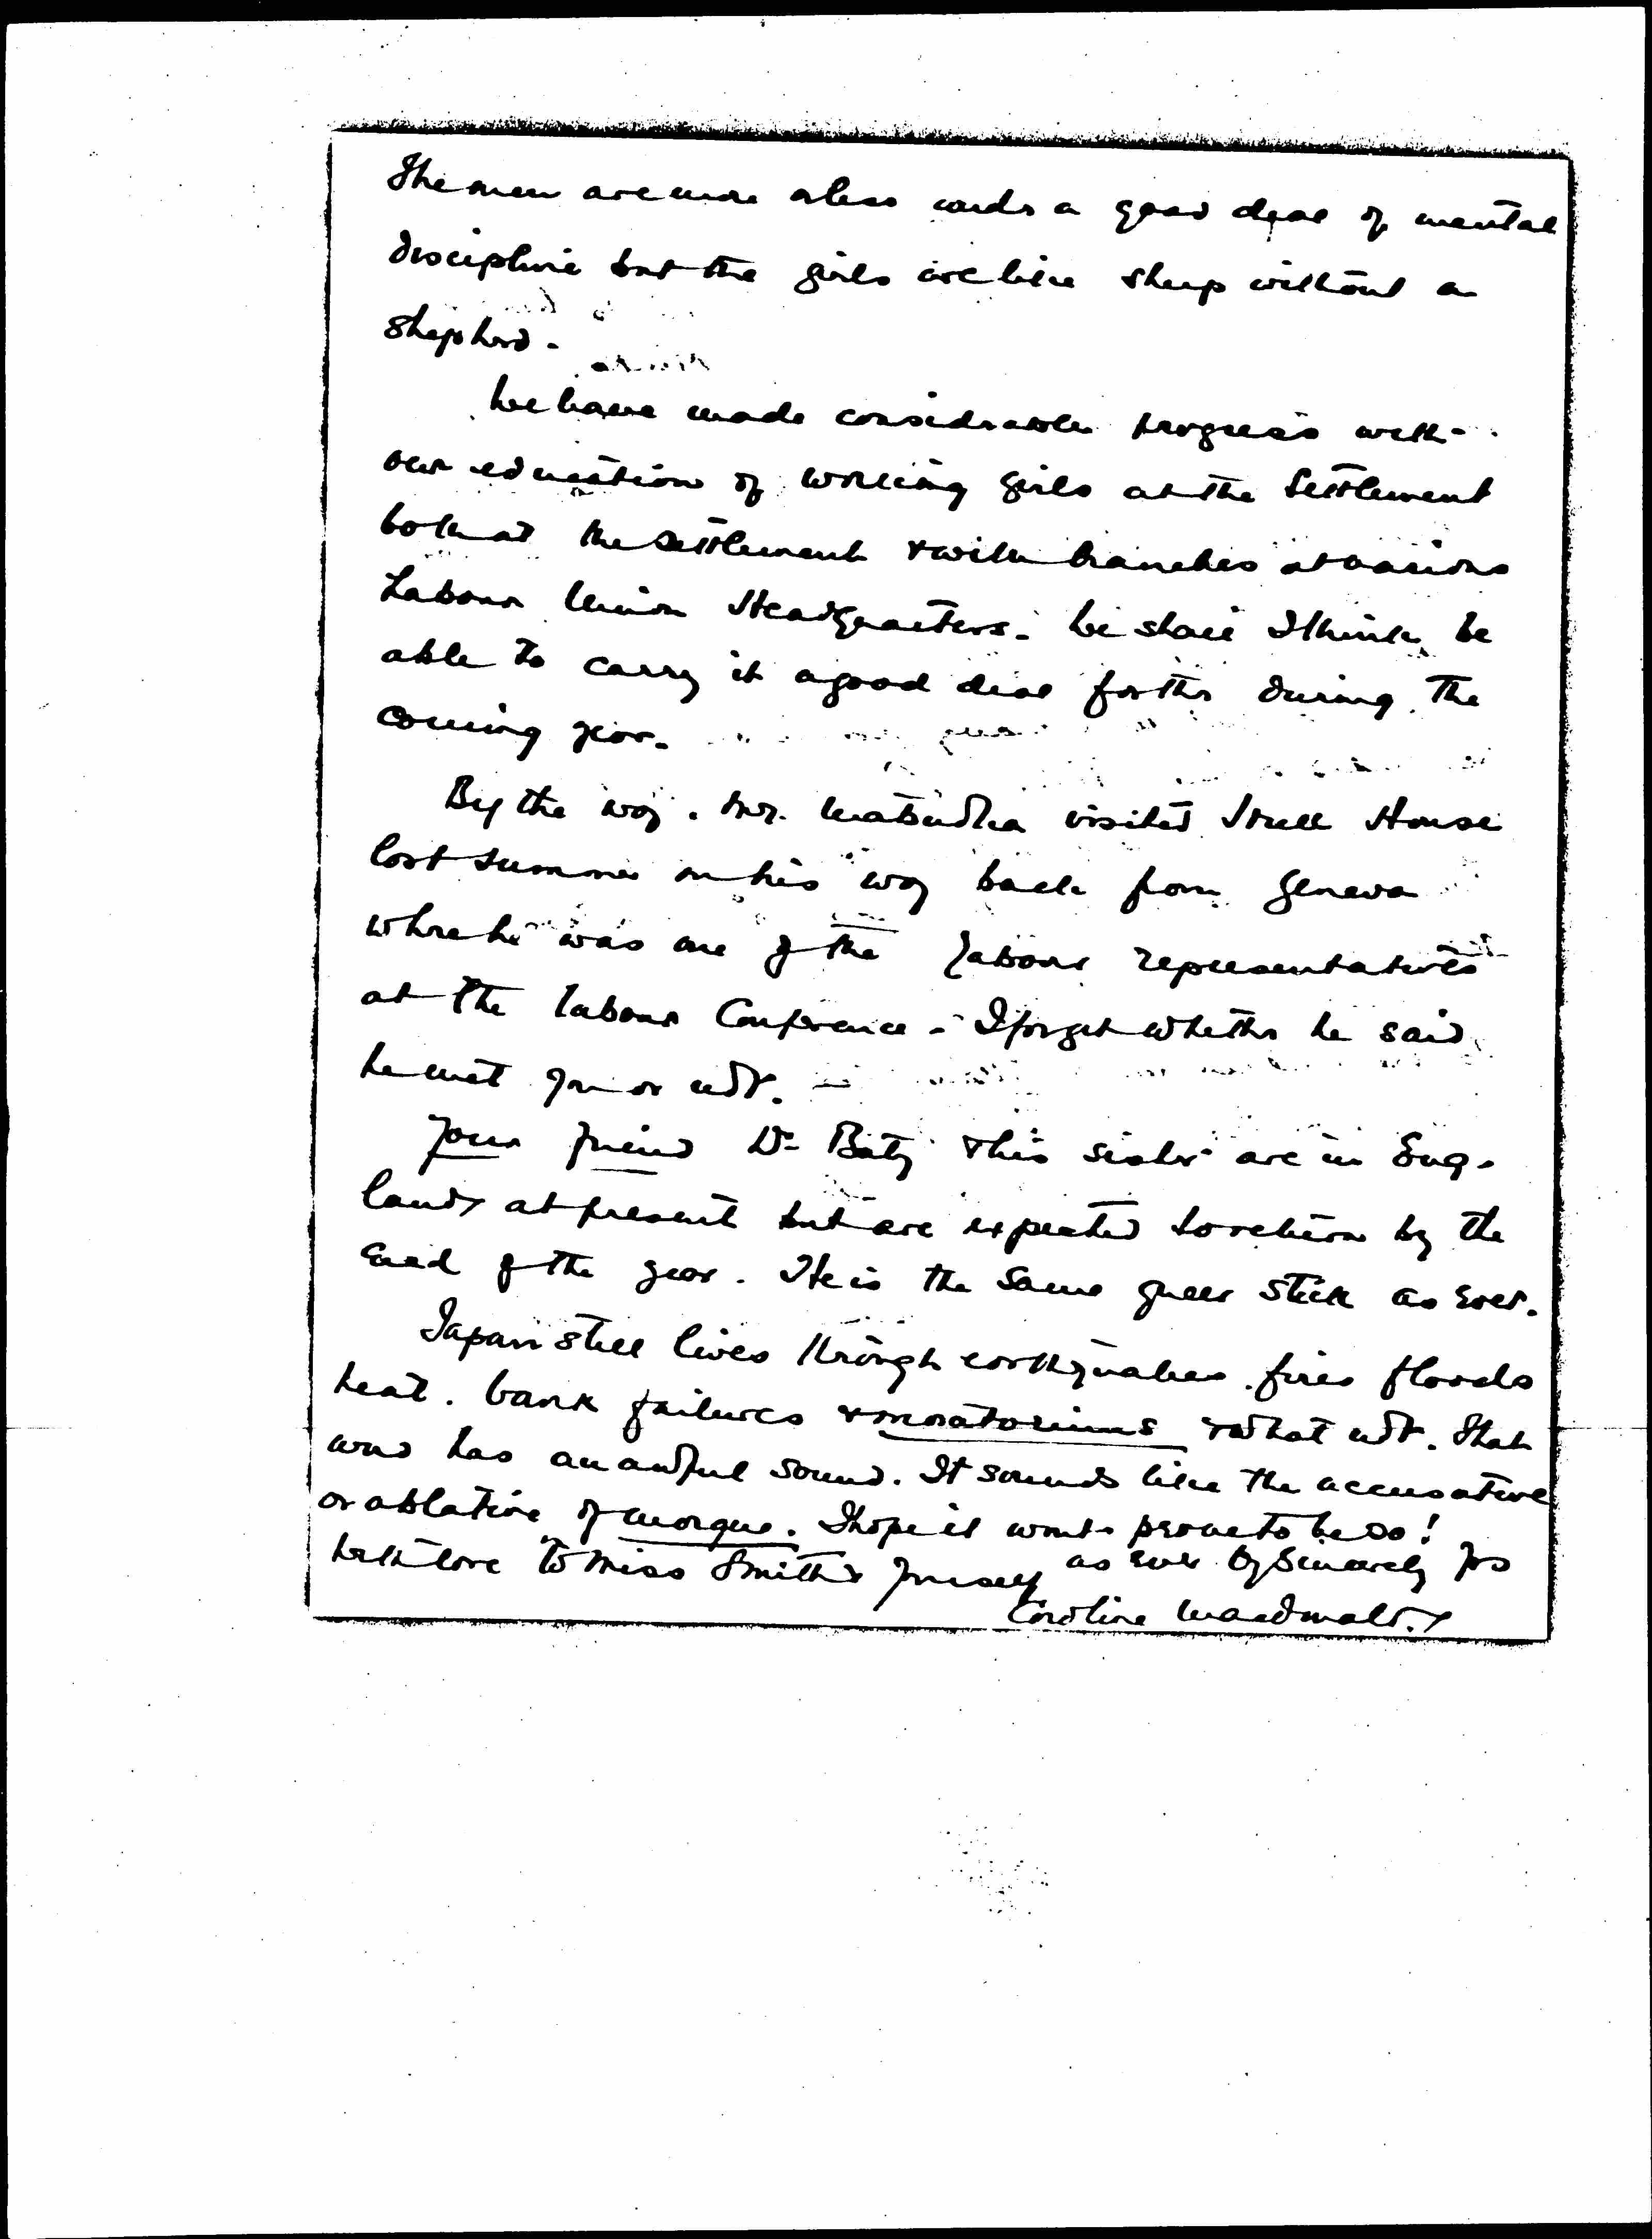 The men are more or less under a good deal of mental
discipline but the girls are like sheep without a
shepherd.
We have made considerable progress with
our education of working girls at the Settlement
both at the Settlement & with branches at various
Labour Union Headquarters. We shall I think be
able to carry it a good deal further during the
coming year.
By the way. Mr. Matsuoka visited Hull House
last summer on his way back from Geneva
where he was one of the labour representatives
at the labour Conference - I forget whether he said
he met you or not. -
Your friend Dr Baty & his sister are in Eng-
land at present but are expected to return by the
end of the year. He is the same queer stick as ever.
Japan still lives through earthquakes. fires floods
heat. bank failures & moratoriums & what not. That
word has an awful sound. It sounds like the accusative
or ablative of morgue. I hope it won't prove to be so!
With love to Miss Smith & yourself as ever sincerely yrs
Caroline Macdonald.